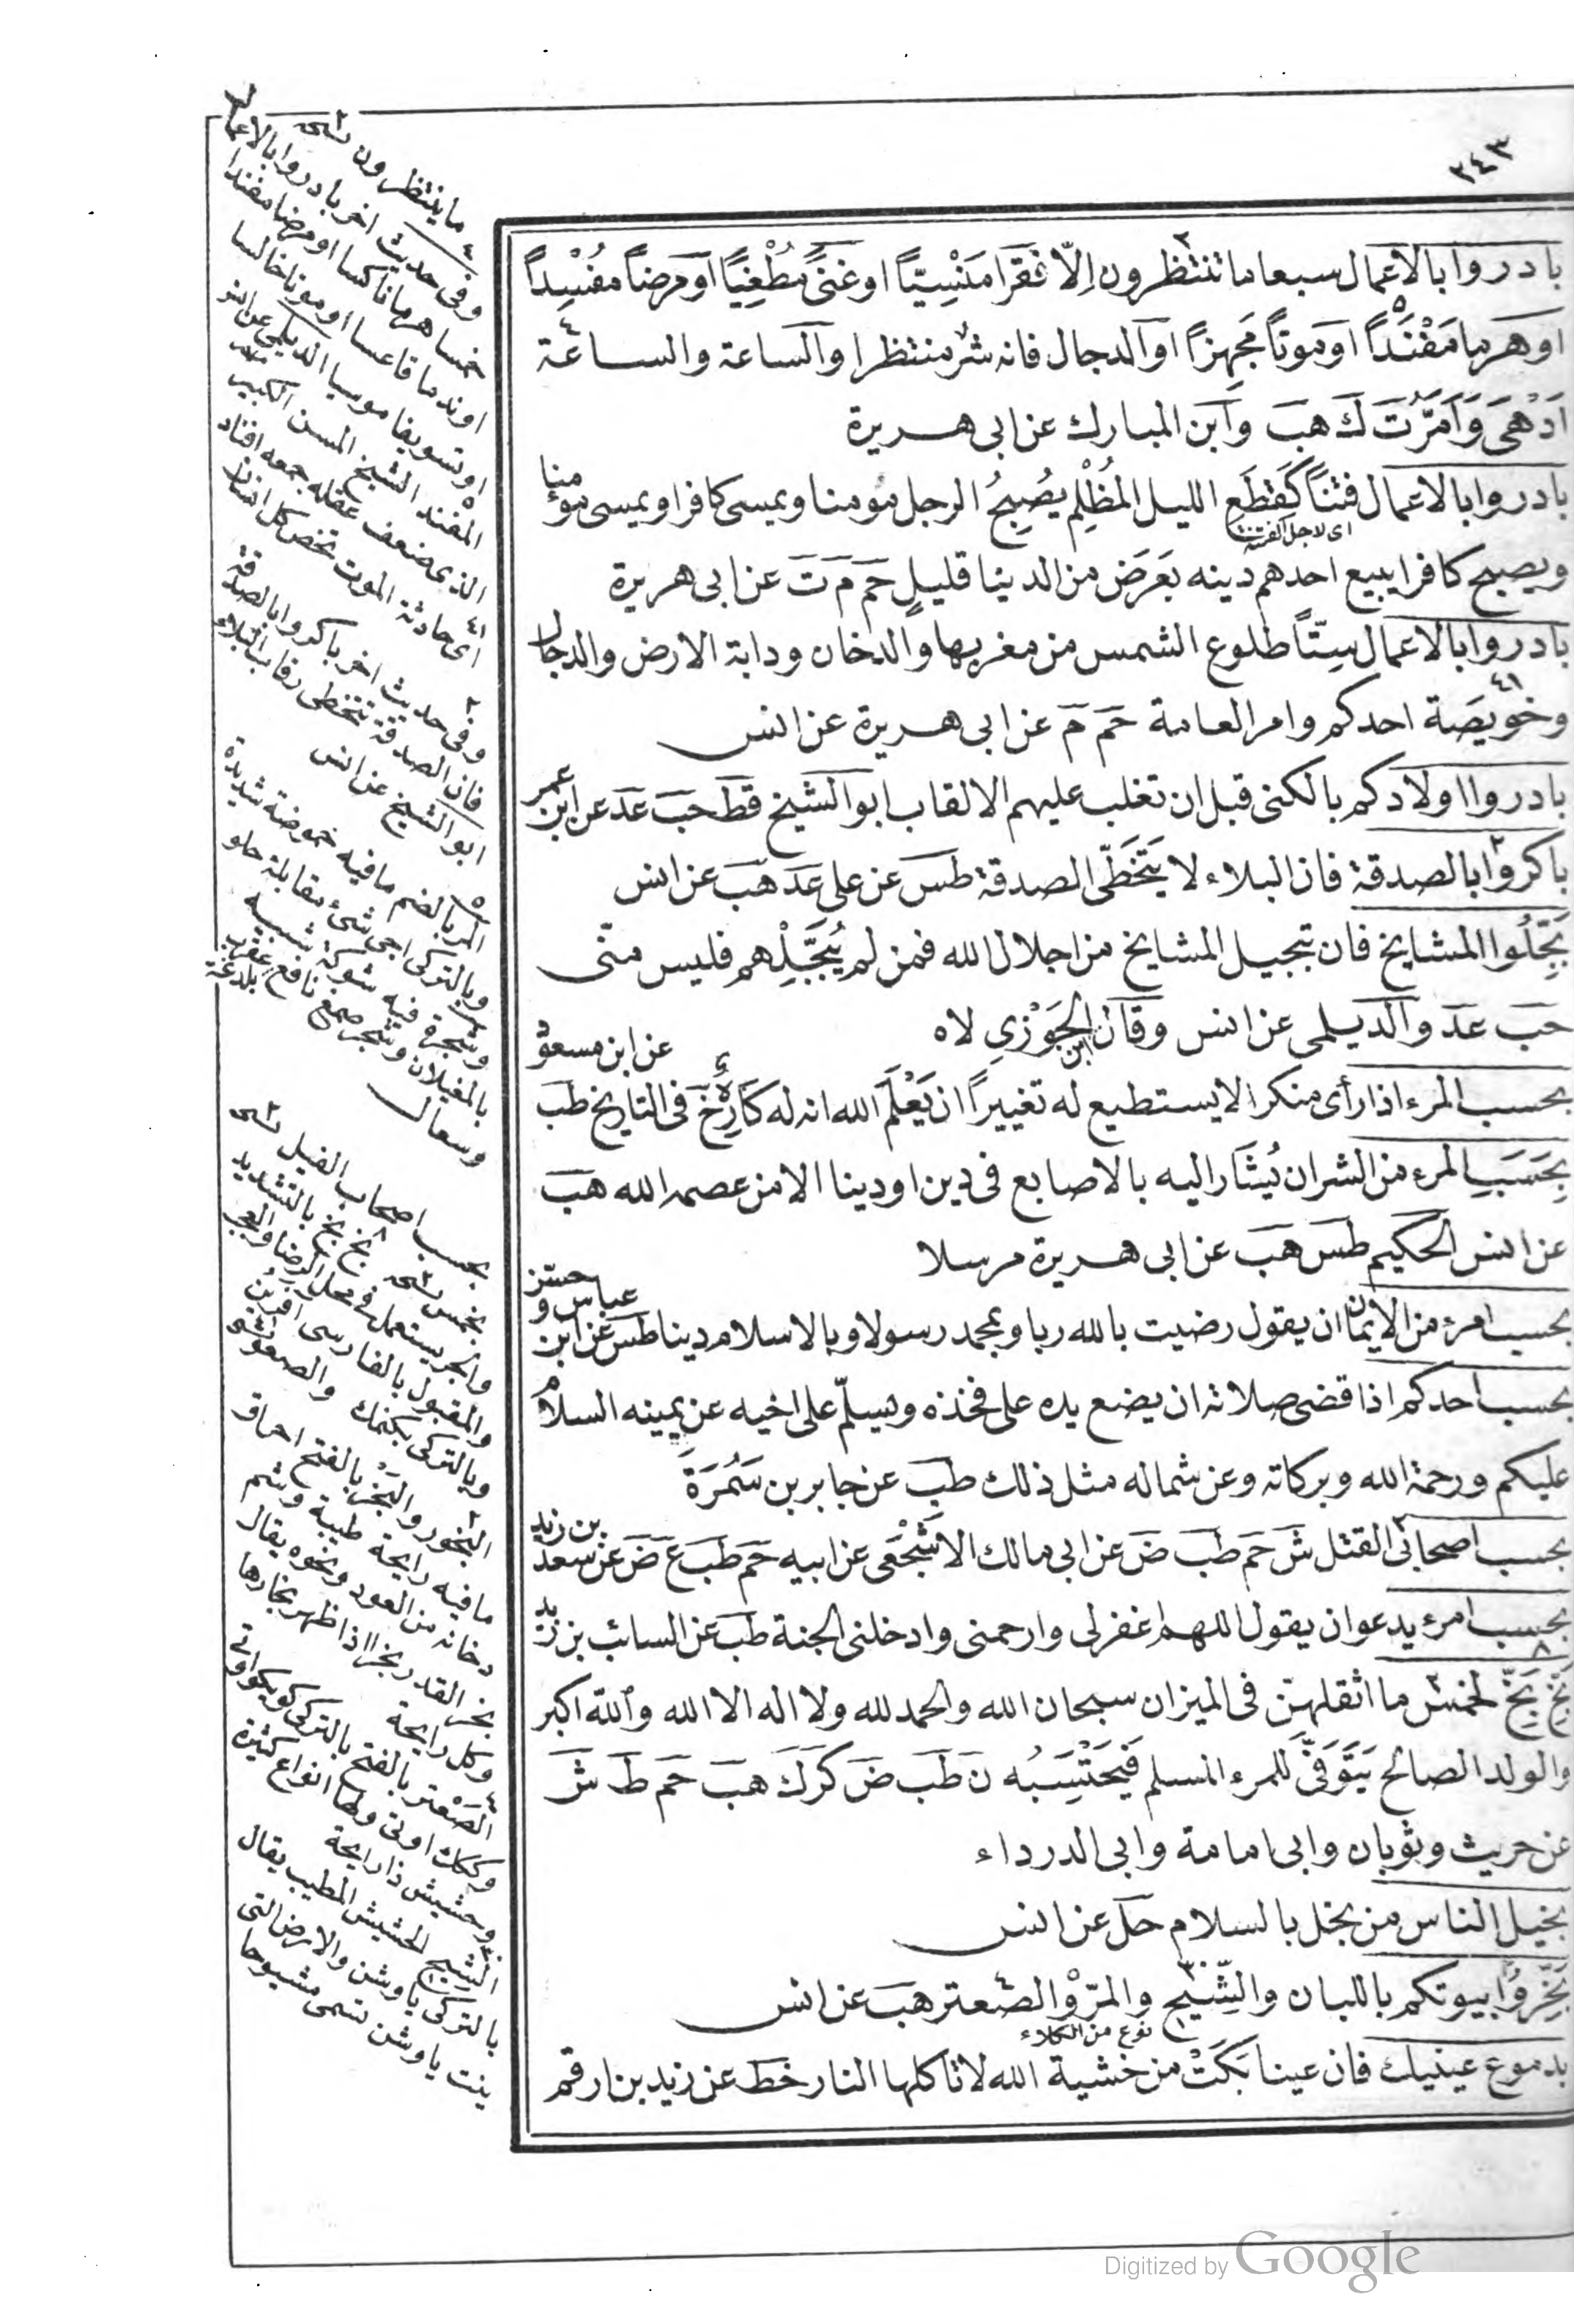 ٢٤٣
بادروا بالاعمال سبعا ما تنتظرون اِلّا فقرا مَنْسِيّاً او غنىً مُطْغِيًا اَو مرضاً مفْسِداً
او هرما مفْنَداً او موتاً مُجهِزاً او الدجال فانه شر منتظر او الساعة والساعة
اَدْهَى وَاَمَرُّ تَ كَ هبَ وابن المبارك عن ابى هريرة
بادروا بالاعمال فتناً كَقِطَعِ الليل المُظْلِم يُصْبِحُ الرجل مؤمنا ويمسى كافرا ويمسى مؤمنا
اى لاجل الفتنة
ويصبح كافرا يبيع احدهم دينه بعَرَض من الدينا قليلٍ حَم مَ تَ عن ابى هريرة
بادروا بالاعمال سِتّاً طلوع الشمس من مغربها والدخان ودابة الارض والدجال
وخويصَة احدكم وامر العامة حَم مَ عن ابى هريرة عن انس
بادروا اولادكم بالكنى قبل ان تغلب عليهم الالقاب ابو الشيخ قط حبَ عَد عن ابن عمر
باكروا بالصدقة فان البلاء لا يَتَخَطّى الصدقة طسَ عن على عَد هَبَ عن انس
بَجِّلُوا المشايخ فان تبجيل المشايخ من اجلال الله فمن لم يُبَجِّلْهم فليس منّى
حبَ عَد والديلمى عن انس وقال ابن الجَوْزي لاه
بحسب المرء اذا رأى منكرا لا يستطيع له تغييراً ان يَعْلَمَ الله انه له كارِهٌ خَ فى التاريخ طب عن ابن مسعود
بِحَسَبِ المرء من الشر ان يُشَار اليه بالاصابع فى دين او دينا الا من عصمه الله هبَ
عن انس الحكيم طسَ هبَ عن ابى هريرة مرسلا
بحسب امرء من الايمان ان يقول رضيت بالله ربا وبمحمد رسولا وبالاسلام دينا طسَ عن ابن عباس وحسّن
بحسب احدكم اذا قضى صلاته ان يضع يده على فخذه ويسلّم على اخيه عن يمينه السلام
عليكم ورحمة الله وبركاته وعن شماله مثل ذلك طبَ عن جابر بن سَمُرَةَ
بحسب اصحابى القتل شَ حَم طبَ ضَ عن ابى مالك الاشْجَعى عن ابيه حَم طبَ عَ ضَ عن سعد بن زيد
بحسب امرء يدعو ان يقول اللهم اغفرلى وارحمنى وادخلنى الجنة طبَ عن السائب بن زيد
بَخٍ بَخٍّ لخمس ما اثقلهنّ فى الميزان سبحان الله والحمد لله ولا اله الا الله والله اكبر
والولد الصالح يَتَوَفّى للمرء المسلم فَيَحْتَسِبُه ن طبَ ضَ كَرَ كَ هبَ حَم طَ شَ
عن حريث وثوبان وابى امامة وابى الدرداء
بخيل الناس من بخل بالسلام حلَ عن انس
بَخِّرُوا بيوتكم باللبان والشِّيْحِ والمرّ والصعتر هبَ عن انس
نوع من الكلاء
بدموع عينيك فان عينا بَكَتْ من خشية الله لا تأكلها النار خط عن زيد بن ارقم
ما ينتظرون نسخه
وفى حديث اخر بادروا بالاعمال
خمسا هرما ناكسا او مرضا مفندا
او تسويفا موسيا الديلمى عن انس
المفند الشيخ المسن الكبير
الذى ضعف عقله جمعه افناد
اى حادثة الموت تخص كل انسان
وفى حديث اخر باكروا بالصدقة
فان الصدقة تتخطى رقاب البلاء
ابو الشيخ عن انس
المر بالضم ما فيه حموضة شديدة
وبالتركى اجى شئ مقابلة حلو
وشجرة فيه شوكة شبيه
وسعال
بحسب اصحاب الفيل نسخه
بخ بخ بالتشديد
بخمس نسخه
والجر يستعمل فى محل الرضا
والمقبول بالفارسى افرين
البخور والبَخر بالفتح احراق
ما فيه رايحة طيبة وشم
دخانه من العود ونحوه يقال
بخر القدر بخرا اذا ظهر بخارها
وكل رايحة
الصَعْتر بالفتح بالتركى
وككك اوتى ولها انواع كثيرة
وحشيش ذا رايحة
الشيح الحشيش المطيب يقال
بالتركى ياوشن والارض التى
ينت ياوشن تسمى مشيوحا
Digitized by Google